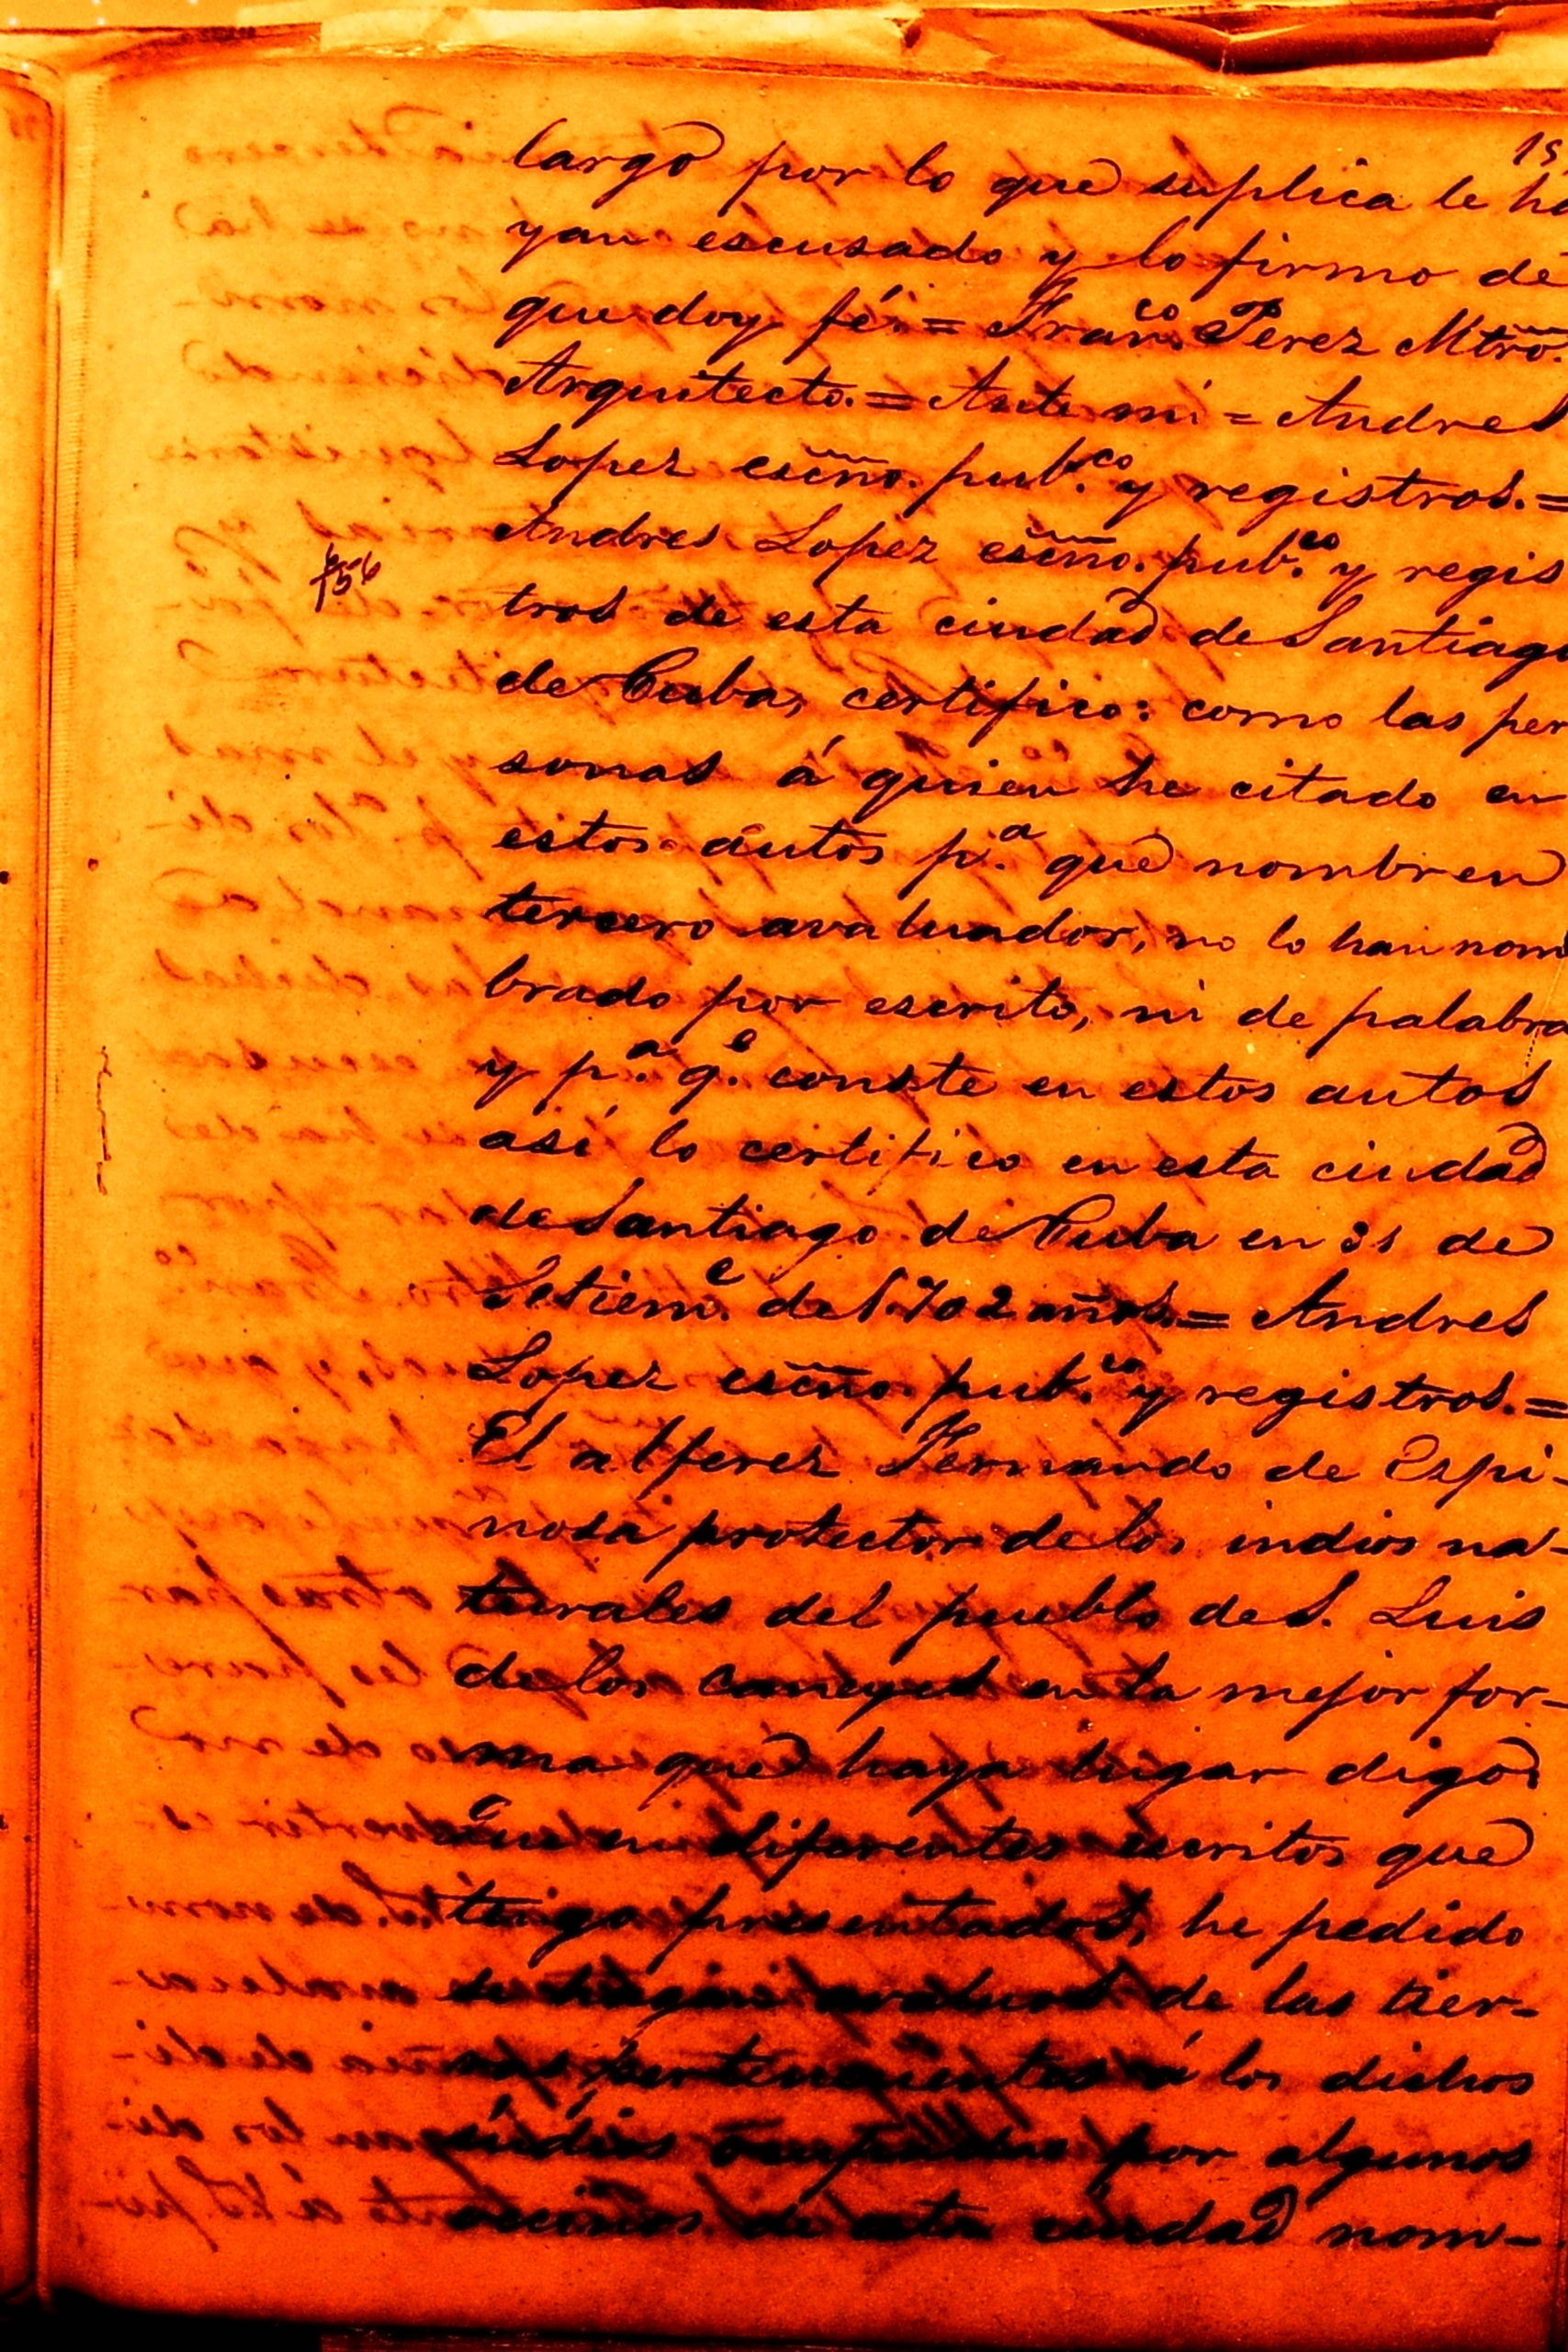 15
largo por lo que suplica le ha
yan escusado y lo firmo de
que doy fé = Franco. Perez Mtro.
Arquitecto. = Ante mi = Andres
Lopez escño. pubco. y registros. =
Andres Lopez escño. pubco. y regis
tros de esta ciudad de Santiago
de Cuba, certifico: como las per
sonas á quien he citado en
estos autos pa. que nombren
tercero avaluador, no lo han nom
brado por escrito, ni de palabra
y pa. qe. conste en estos autos
así lo certifico en esta ciudad
de Santiago de Cuba en 31 de
Setieme. de 1.702 años. = Andres
Lopez escño. pubco. y registros. =
El alferez Fernando de Espi-
nosa protector de los indios na-
turales del pueblo de S. Luis
de los caneyes en la mejor for-
ma que haya lugar digo:
Que en diferentes escritos que
tengo presentados, he pedido
de las tier-
ras pertenecientes á los dichos
indios ocupadas por algunos
vecinos de esta ciudad nom-